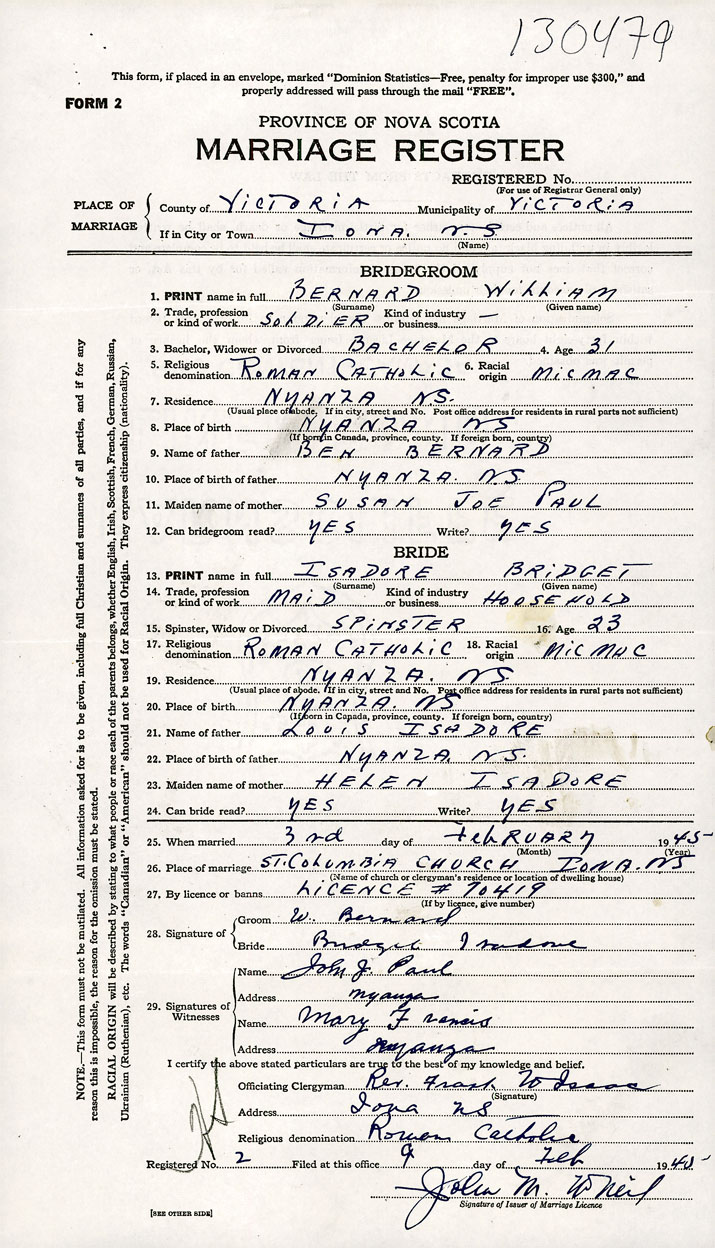 130479
This form, if placed in an envelope, marked "Dominion Statistics—Free, penalty for improper use $300," and
properly addressed will pass through the mail "FREE".
FORM 2
PROVINCE OF NOVA SCOTIA
MARRIAGE REGISTER
REGISTERED No.
(For use of Registrar General only)
PLACE OF MARRIAGE
County of VICTORIA Municipality of VICTORIA
If in City or Town IONA. N.S
(Name)
BRIDEGROOM
1. PRINT name in full BERNARD WILLIAM
(Surname) (Given name)
2. Trade, profession or kind of work SOLDIER Kind of industry or business —
3. Bachelor, Widower or Divorced BACHELOR 4. Age 31
5. Religious denomination ROMAN CATHOLIC 6. Racial origin MICMAC
7. Residence NYANZA NS.
(Usual place of abode. If in city, street and No. Post office address for residents in rural parts not sufficient)
8. Place of birth NYANZA NS
(If born in Canada, province, county. If foreign born, country)
9. Name of father BEN BERNARD
10. Place of birth of father NYANZA. N.S.
11. Maiden name of mother SUSAN JOE PAUL
12. Can bridegroom read? YES Write? YES
BRIDE
13. PRINT name in full ISADORE BRIDGET
(Surname) (Given name)
14. Trade, profession or kind of work MAID Kind of industry or business HOUSEHOLD
15. Spinster, Widow or Divorced SPINSTER 16. Age 23
17. Religious denomination ROMAN CATHOLIC 18. Racial origin MICMAC
19. Residence NYANZA. NS.
(Usual place of abode. If in city, street and No. Post office address for residents in rural parts not sufficient)
20. Place of birth NYANZA. NS
(If born in Canada, province, county. If foreign born, country)
21. Name of father LOUIS ISADORE
22. Place of birth of father NYANZA. NS.
23. Maiden name of mother HELEN ISADORE
24. Can bride read? YES Write? YES
25. When married 3rd day of FEBRUARY 1945
(Month) (Year)
26. Place of marriage ST. COLUMBIA CHURCH IONA. NS
(Name of church or clergyman's residence or location of dwelling house)
27. By licence or banns LICENCE # 70419
(If by licence, give number)
28. Signature of
Groom W. Bernard
Bride Bridget Isadore
29. Signatures of Witnesses
Name John J. Paul
Address nyanza
Name Mary Francis
Address nyanza
I certify the above stated particulars are true to the best of my knowledge and belief.
Officiating Clergyman Rev. Frank W Isaac
(Signature)
Address Iona NS
Religious denomination Roman Catholic
Registered No. 2 Filed at this office 9 day of Feb 1945
John M. McNeil
Signature of Issuer of Marriage Licence
[SEE OTHER SIDE]
NOTE.—This form must not be mutilated. All information asked for is to be given, including full Christian and surnames of all parties, and if for any
reason this is impossible, the reason for the omission must be stated.
RACIAL ORIGIN will be described by stating to what people or race each of the parents belongs, whether English, Irish, Scottish, French, German, Russian,
Ukrainian (Ruthenian), etc. The words "Canadian" or "American" should not be used for Racial Origin. They express citizenship (nationality).